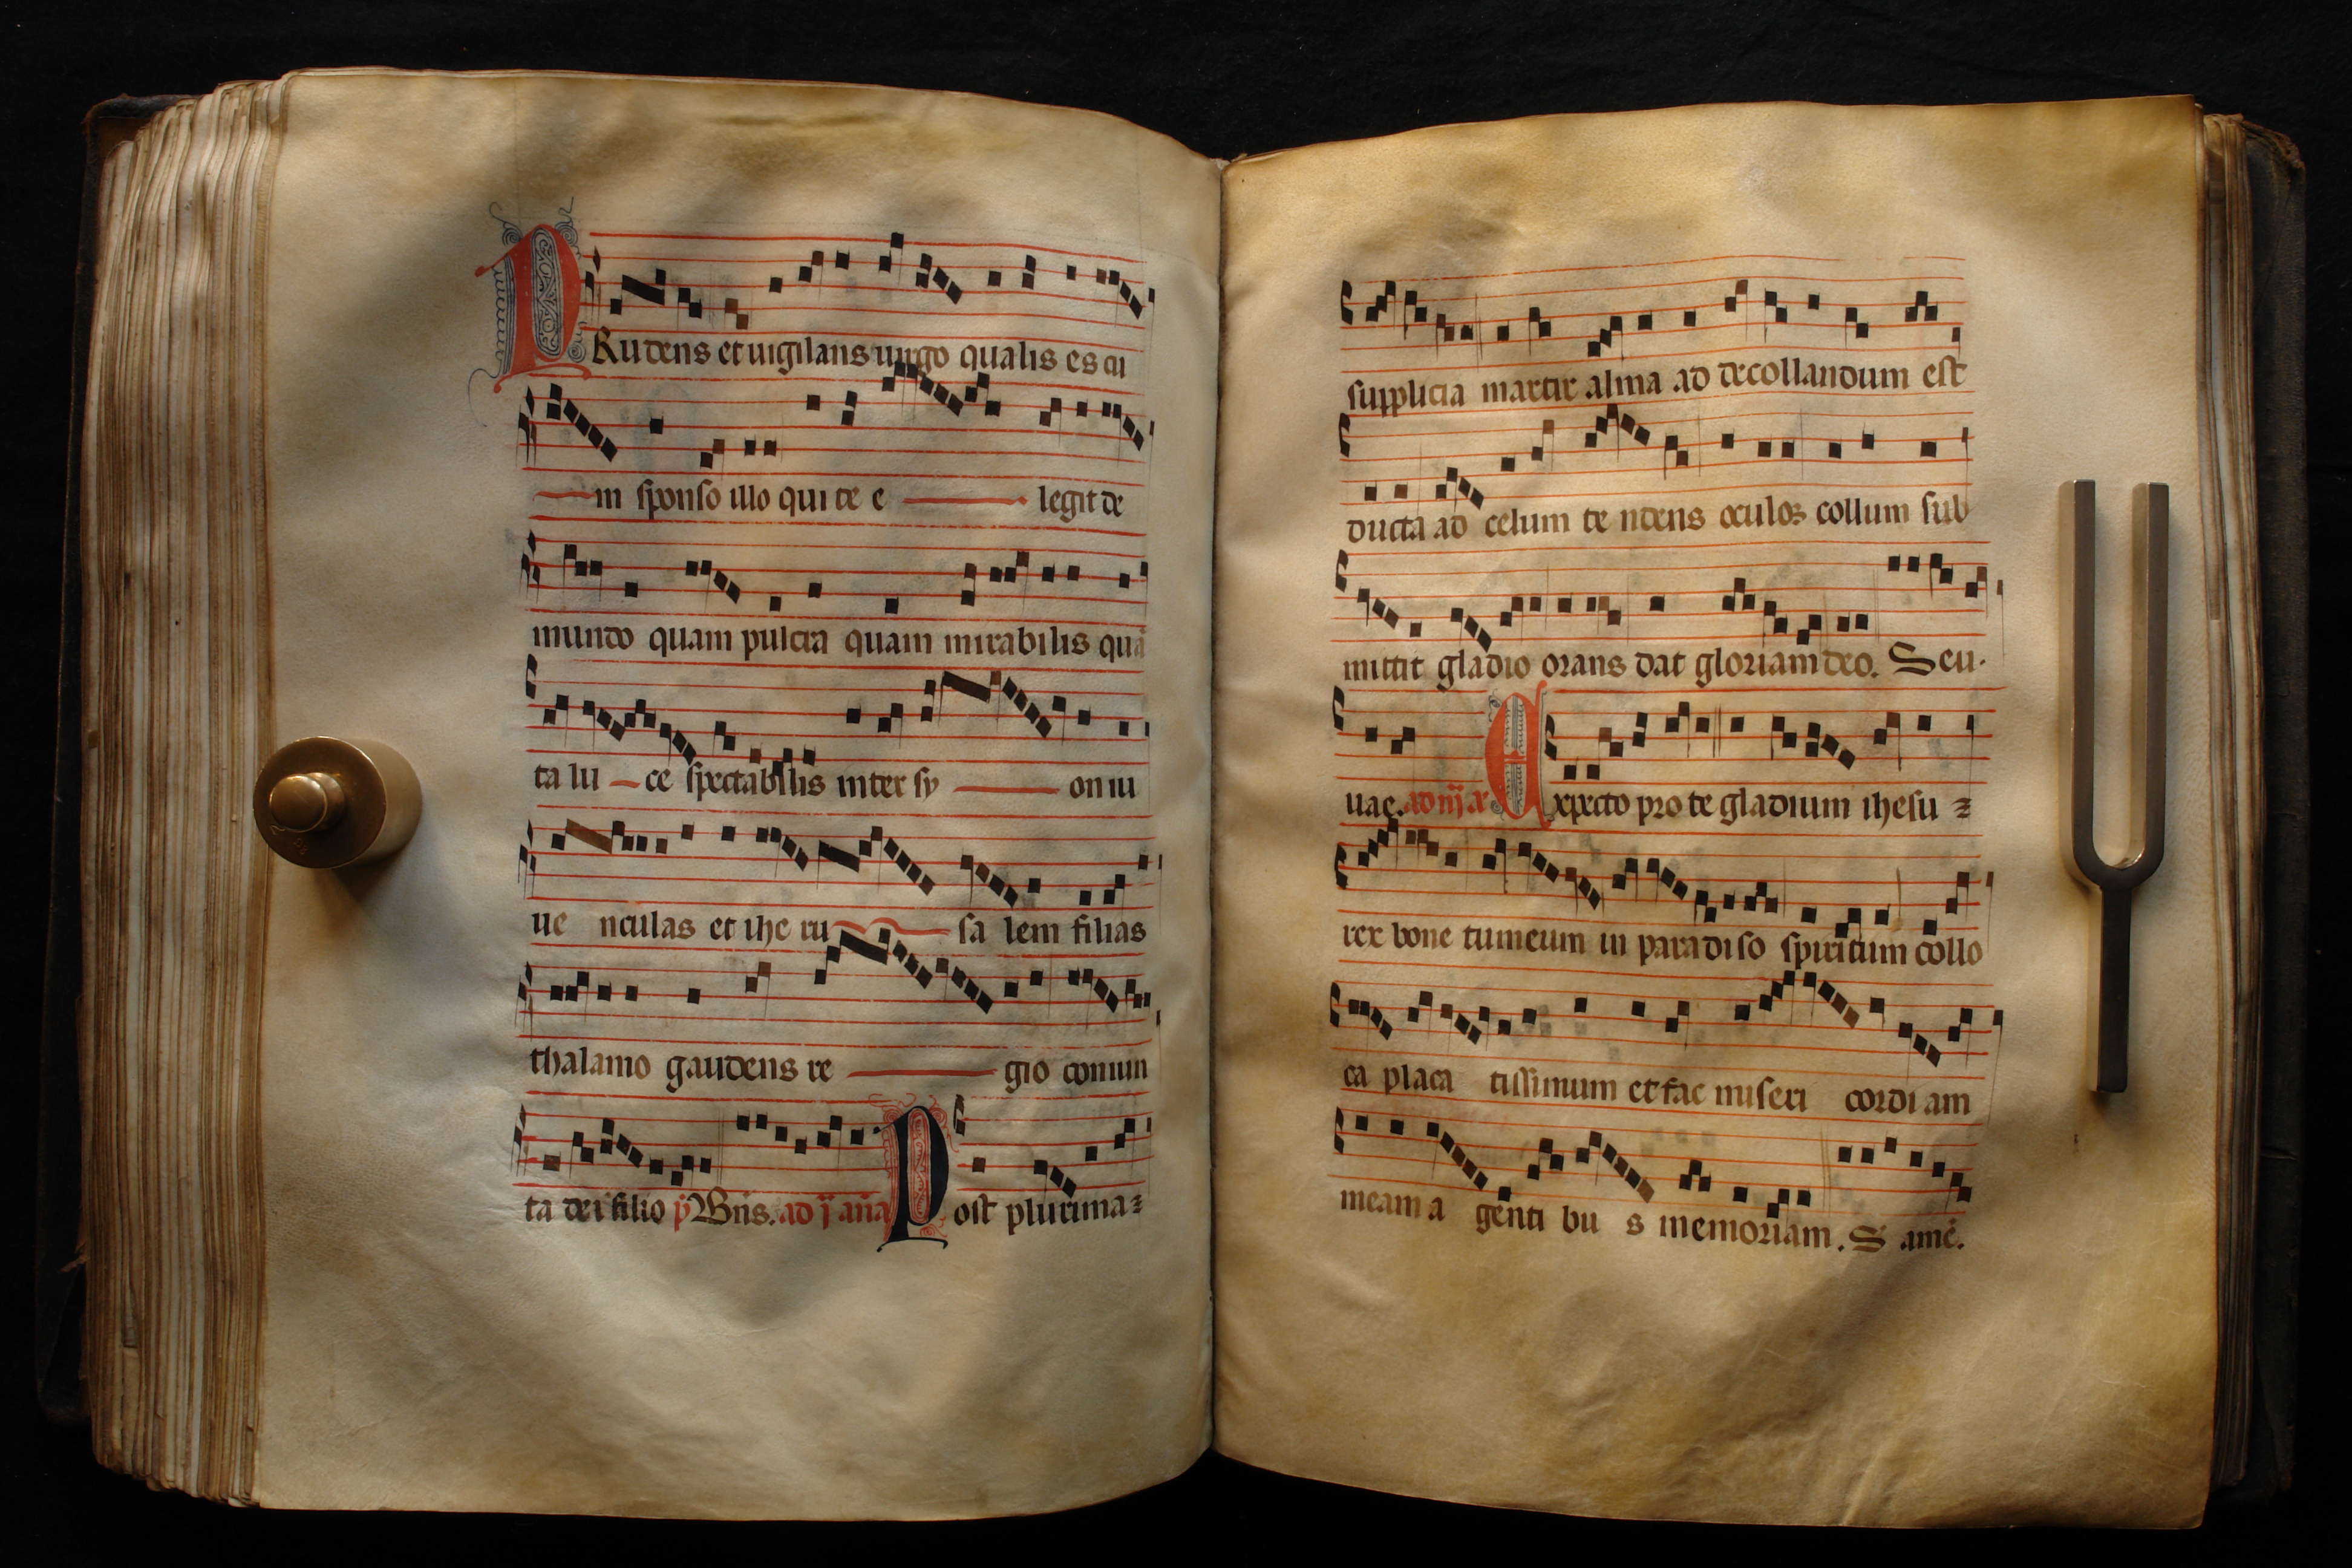 PRudens et uigilans uirgo qualis es cu
in sponso illo qui te e legit de
mundo quam pulcra quam mirabilis quā
ta lu ce spectabilis inter sy on iu
ue nculas et ihe ru sa lem filias
thalamo gaudens re gio coniun
ta dei filio p̄ Bn̄s. ad j an̄a Post plurima ⁊
supplicia martir alma ad decollandum est
ducta ad celum te ndens oculos collum sub
mittit gladio orans dat gloriam deo. Seu.
uae. ad iij a Expecto pro te gladium ihesu ⁊
rex bone tu meum in para di so spiritum collo
ca placa tissimum et fac miseri cordi am
meam a genti bu s memoriam. S amē.